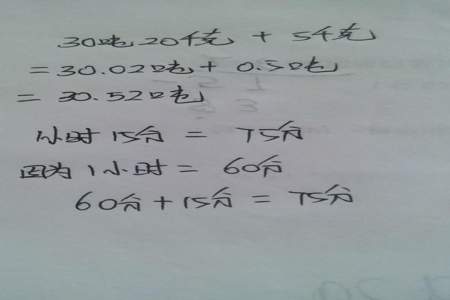 30吨20千克 + 5千克
= 30.02吨 + 0.5吨
= 30.52吨
1小时15分 = 75分
因为1小时 = 60分
60分 + 15分 = 75分